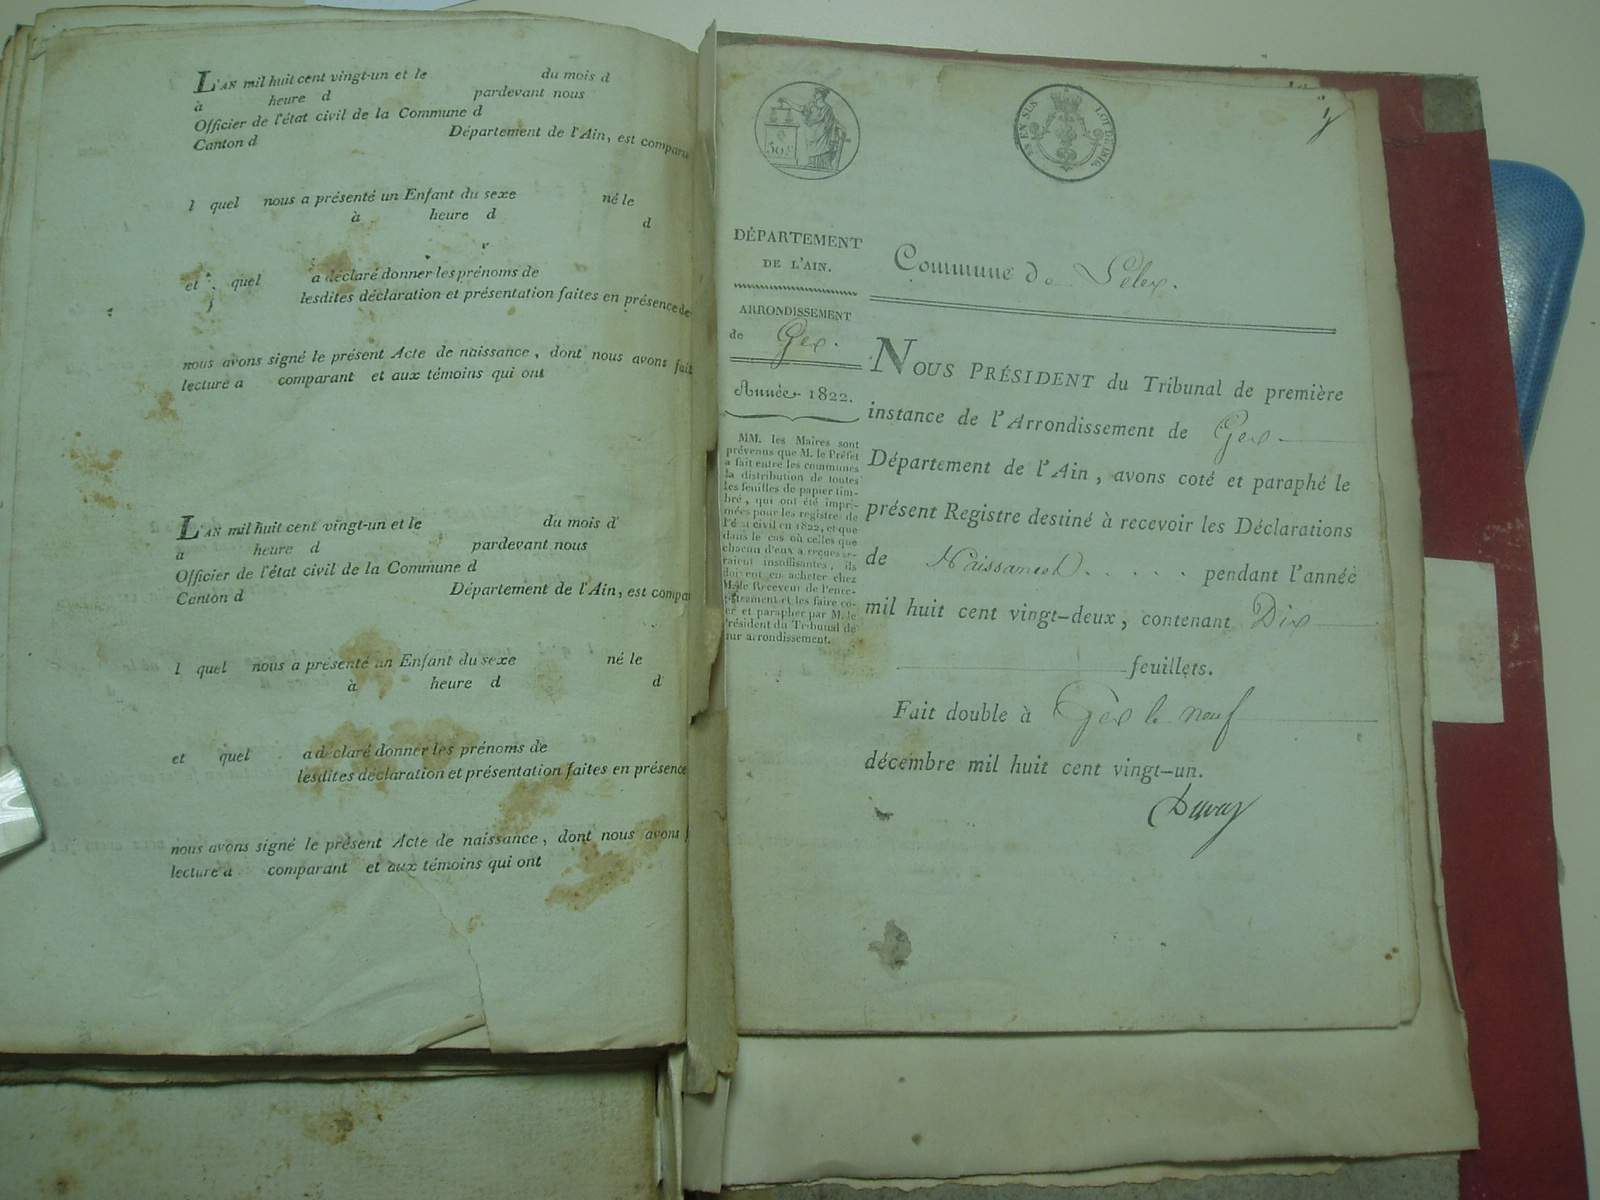 L'AN mil huit cent vingt-un et le du mois d
à heure d pardevant nous
Officier de l'état civil de la Commune d
Canton d Département de l'Ain, est compara
l quel nous a présenté un Enfant du sexe né le
à heure d d
et quel a déclaré donner les prénoms de
lesdites déclaration et présentation faites en présence de
nous avons signé le présent Acte de naissance, dont nous avons fait
lecture a comparant et aux témoins qui ont
L'AN mil huit cent vingt-un et le du mois d
à heure d pardevant nous
Officier de l'état civil de la Commune d
Canton d Département de l'Ain, est compar
l quel nous a présenté un Enfant du sexe né le
à heure d d
et quel a déclaré donner les prénoms de
lesdites déclaration et présentation faites en présence
nous avons signé le présent Acte de naissance, dont nous avons f
lecture a comparant et aux témoins qui ont
50 c
EN SUS LOI DE
DÉPARTEMENT
DE L'AIN.
ARRONDISSEMENT
de Gex.
Année 1822.
MM. les Maires sont
prévenus que M. le Préfet
a fait entre les communes
la distribution de toutes
les feuilles de papier tim-
bré, qui ont été impri-
mées pour les registre de
l'état civil en 1822, et que
dans le cas où celles que
chacun d'eux a reçues se-
raient insuffisantes, ils
doivent en acheter chez
M. le Receveur de l'enre-
gistrement et les faire co-
er et parapher par M. le
résident du Tribunal de
ur arrondissement.
Commune de Lélex.
NOUS PRÉSIDENT du Tribunal de première
instance de l'Arrondissement de Gex
Département de l'Ain, avons coté et paraphé le
présent Registre destiné à recevoir les Déclarations
de Naissances . . . . . pendant l'année
mil huit cent vingt-deux, contenant Dix
feuillets.
Fait double à Gex le neuf
décembre mil huit cent vingt-un.